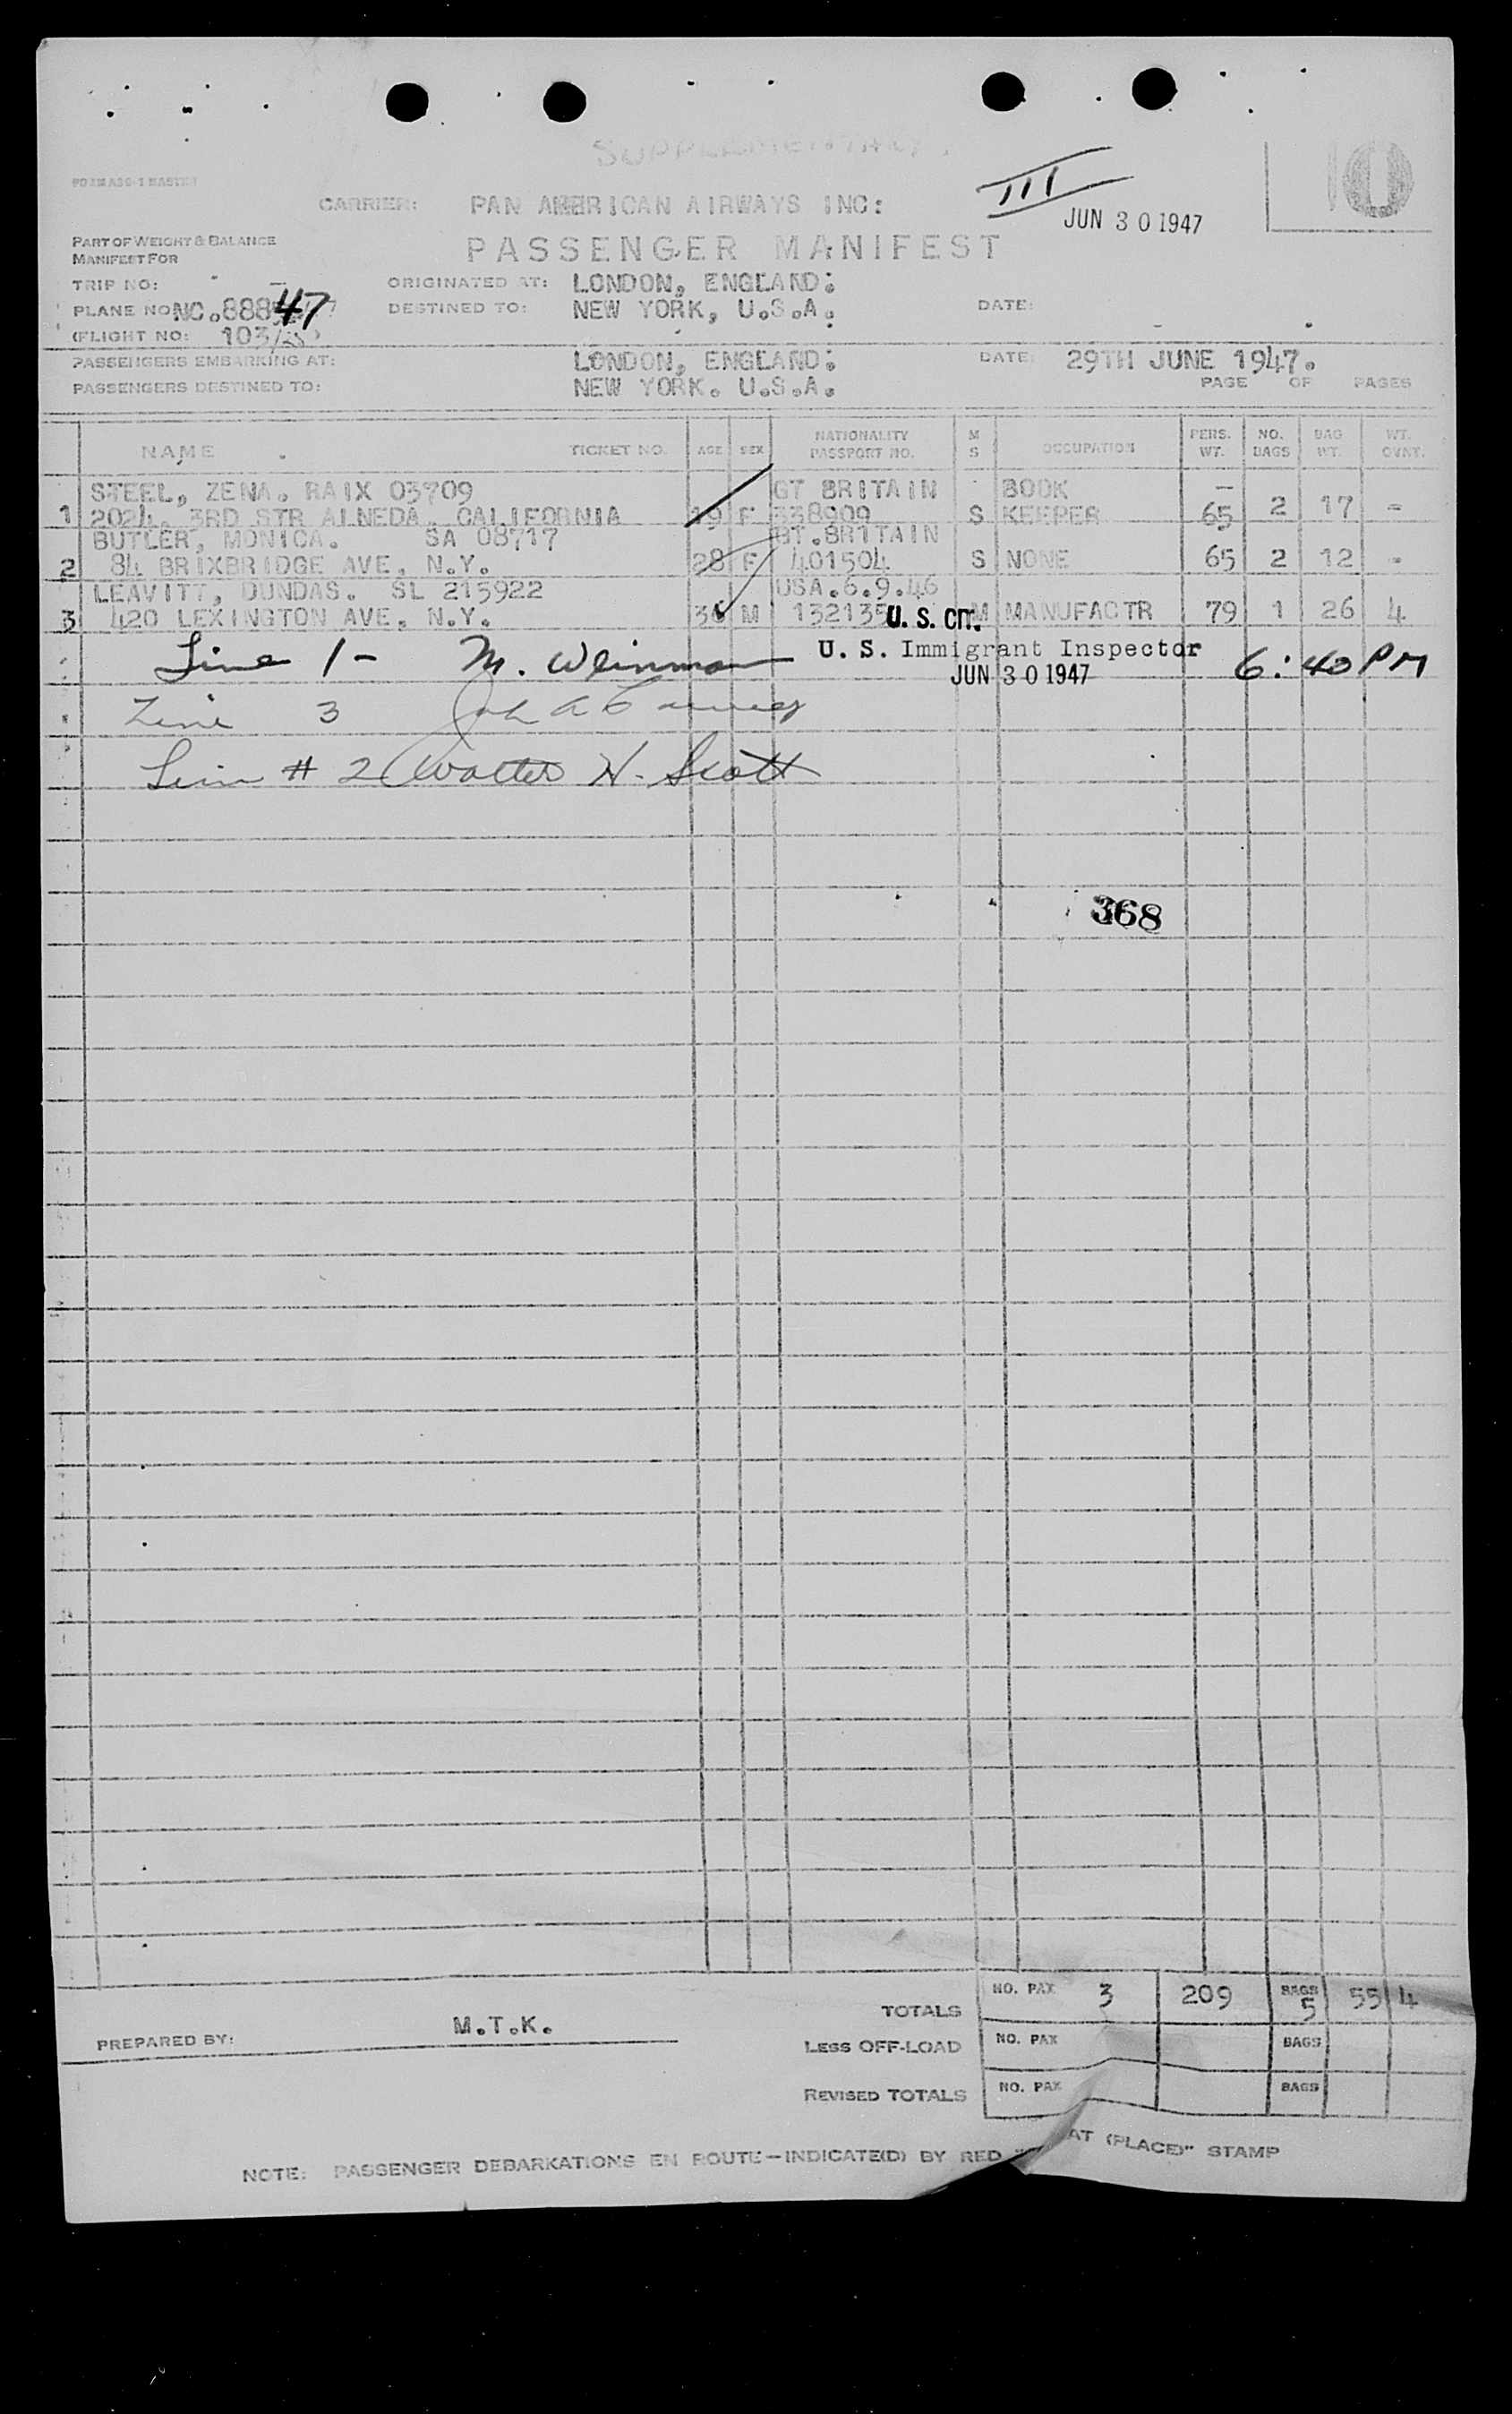 SUPPLEMENTARY.
FORM ASO-1 MASTER
CARRIER: PAN AMERICAN AIRWAYS INC:
III
JUN 3 0 1947
10
PART OF WEIGHT & BALANCE
MANIFEST FOR
PASSENGER MANIFEST
TRIP NO: ORIGINATED AT: LONDON, ENGLAND:
PLANE NO NC.88847 DESTINED TO: NEW YORK, U.S.A. DATE:
(FLIGHT NO: 103/
PASSENGERS EMBARKING AT: LONDON, ENGLAND: DATE: 29TH JUNE 1947.
PASSENGERS DESTINED TO: NEW YORK. U.S.A. PAGE OF PAGES
NAME TICKET NO. AGE SEX NATIONALITY PASSPORT NO. M S OCCUPATION PERS. WT. NO. BAGS BAG WT. WT. OVNT.
STEEL, ZENA. RAIX 03709 GT BRITAIN BOOK —
1 2024. 3RD STR ALNEDA. CALIFORNIA 19 F 338909 S KEEPER 65 2 17 -
BUTLER, MONICA. SA 08717 GT.BRITAIN
2 84 BRIXBRIDGE AVE, N.Y. 28 F 401504 S NONE 65 2 12 -
LEAVITT, DUNDAS. SL 215922 USA.6.9.46
3 420 LEXINGTON AVE, N.Y. 36 M 132135 U. S. CIT. M MANUFACTR 79 1 26 4
Line 1 - M. Weinman U. S. Immigrant Inspector 6:40 PM
JUN 3 0 1947
Line 3
Line # 2 Walter H. Scott
368
TOTALS NO. PAX 3 209 BAGS 5 55 4
PREPARED BY: M.T.K.
LESS OFF-LOAD NO. PAX BAGS
REVISED TOTALS NO. PAX BAGS
NOTE: PASSENGER DEBARKATIONS EN ROUTE—INDICATE(D) BY RED AT (PLACE)" STAMP